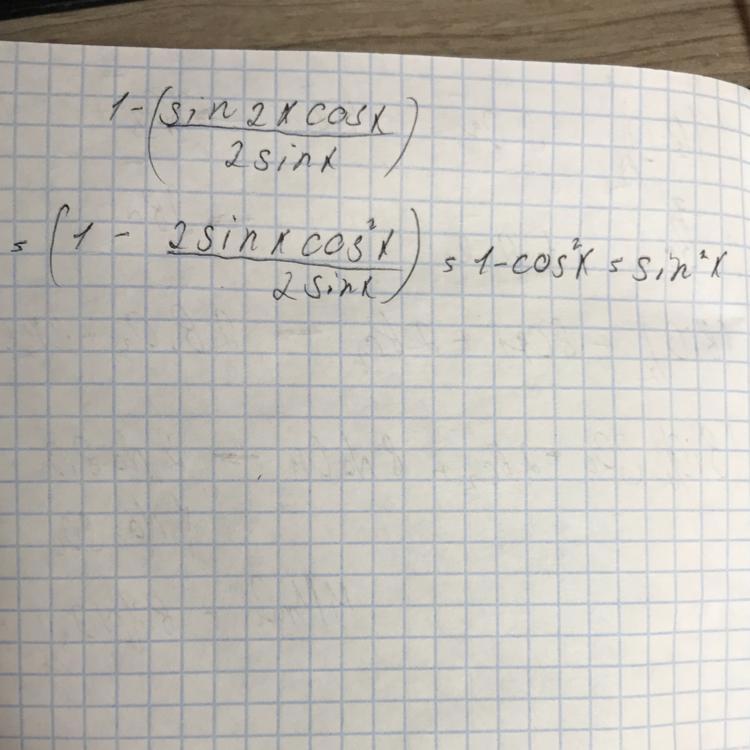 1-(sin 2x cosx
2sinx)
= (1 - 2sinx cos²x
2sinx) = 1-cos²x = sin²x